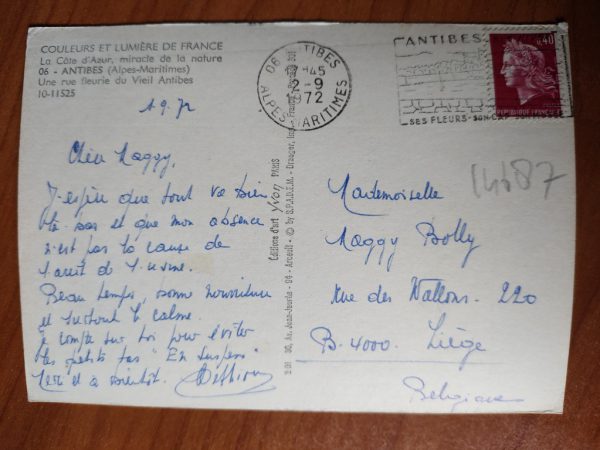 COULEURS ET LUMIÈRE DE FRANCE
La Côte d'Azur, miracle de la nature
06 - ANTIBES (Alpes-Maritimes)
Une rue fleurie du Vieil Antibes
10-11525
1.9.72
Chère Maggy,
J'espère que tout va bien
là bas et que mon absence
n'est pas la cause de
l'arrêt de l'usine.
Beau temps, bonne nourriture
et surtout le calme.
Je compte sur toi pour éviter
les petits tas "En suspens"
Merci et à bientôt.
Éditions d'art Yvon PARIS
06 ANTIBES
ALPES MARITIMES
17H45
2-9
1972
ANTIBES
SES FLEURS-SON CAP
0,40
REPUBLIQUE FRANÇAISE
14687
Mademoiselle
Maggy Bolly
Rue des Wallons. 220
B. 4000. Liège
Belgique